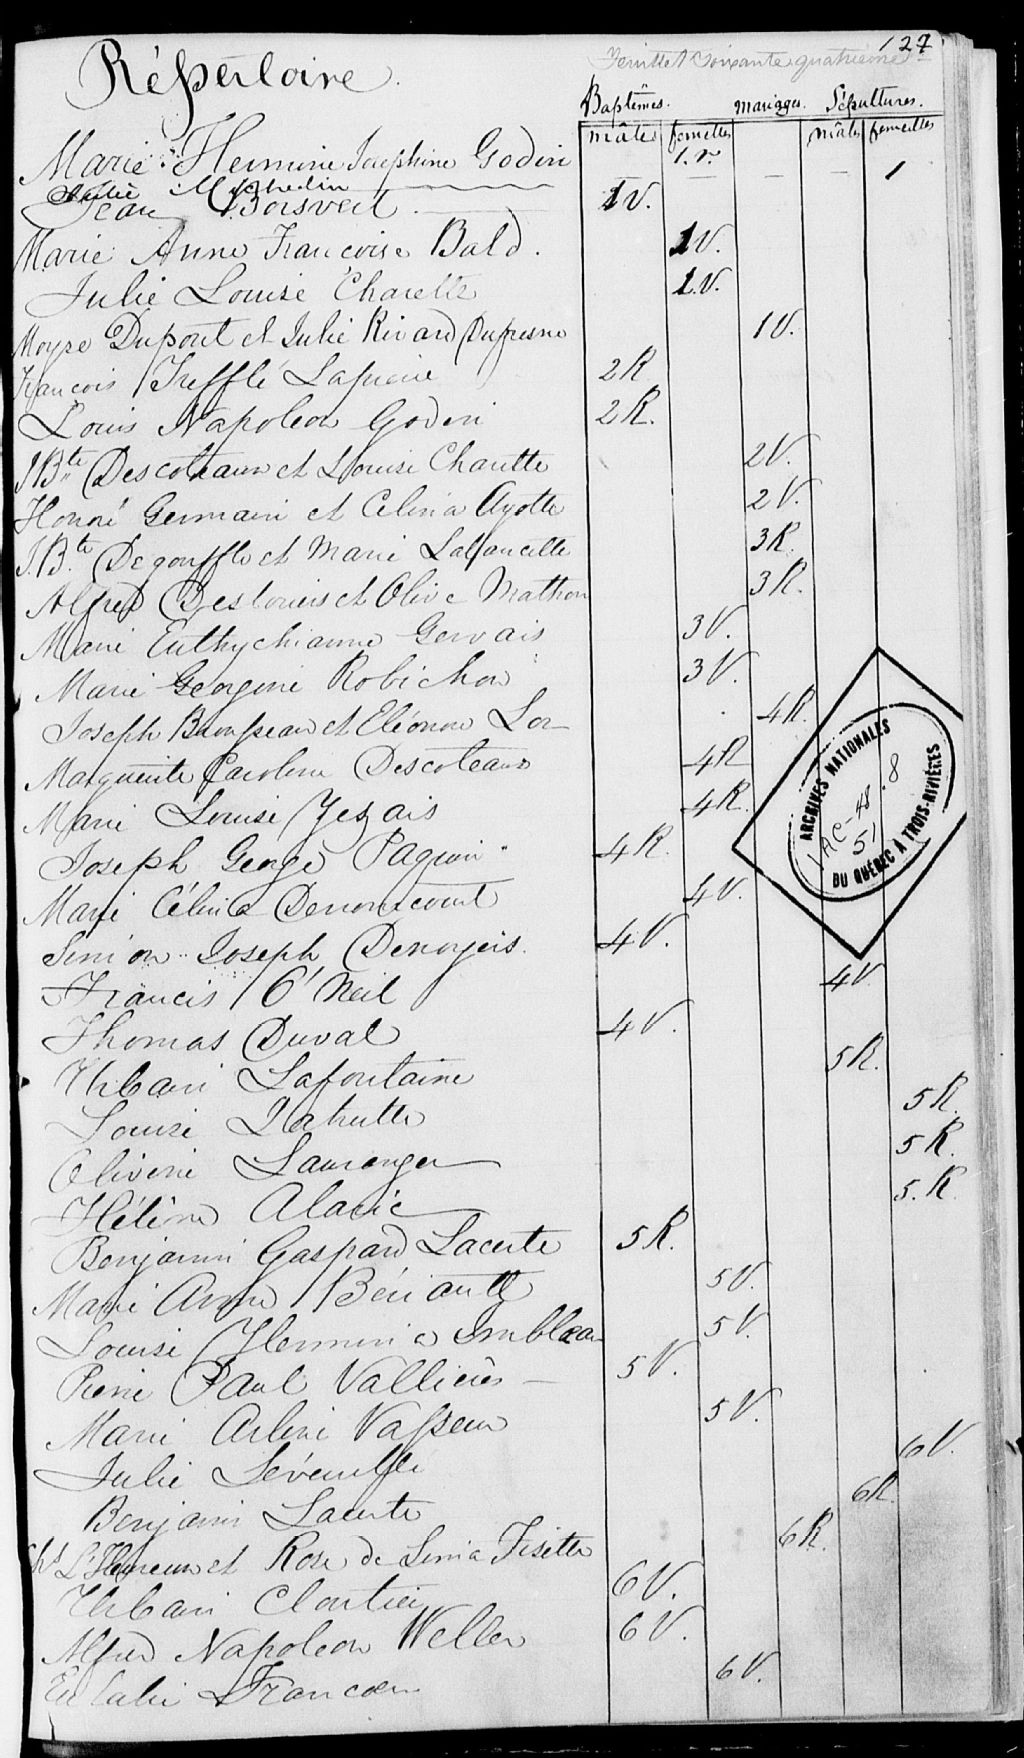 127
Feuillet Soixante quatrième
Répertoire.
Baptêmes. mariages. Sépultures.
mâles femelles mâles femelles
Marie Hermine Josephine Godin 1.r. 1
Julie M. Bhelin
Jean Boisvert 1V.
Marie Anne Françoise Bald. 1V.
Julie Louise Charette 1.V.
Moyse Dupont et Julie Rivard Dufresne 1V.
François Trefflé Lapierre 2R
Louis Napoleon Godin 2R.
J.Bte Descoteaux et Louise Charette 2V.
Honoré Germain et Celina Ayotte 2V.
J.Bte Degouffle et Marie Lafrancette 3R.
Alfred Deslouiers et Olive Mathon 3R.
Marie Euthychianne Gervais 3V.
Marie Georgine Robichon 3V.
Joseph Beaupseau et Eléonore Lor 4R.
Marguerite Caroline Descoteaux 4R
Marie Louise Gezais 4R.
Joseph George Paquin 4R.
Marie Célina Denoncourt 4V.
Siméon Joseph Denoyers. 4V.
Francis O'Neil 4V
Thomas Duval 4V.
Urbain Lafontaine 5R.
Louise Lahutte 5R.
Oliverie Lauranger 5R.
Hélène Alarie 5.R.
Benjamin Gaspard Lacerte 5R.
Marie Anne Beriault 5V.
Louise Hermine Imbleau 5V.
Pierre Paul Vallières 5V.
Marie Arline Vasseur 5V.
Julie Léveillé 6V.
Benjamin Lacerte 6R.
Chs L'Heureux et Rose de Lima Fisette 6R.
Urbain Cloutier 6V.
Alfred Napoleon Weller 6V.
Eulalie Francoeur 6V.
ARCHIVES NATIONALES
IAC-48.8
51
DU QUÉBEC À TROIS-RIVIÈRES